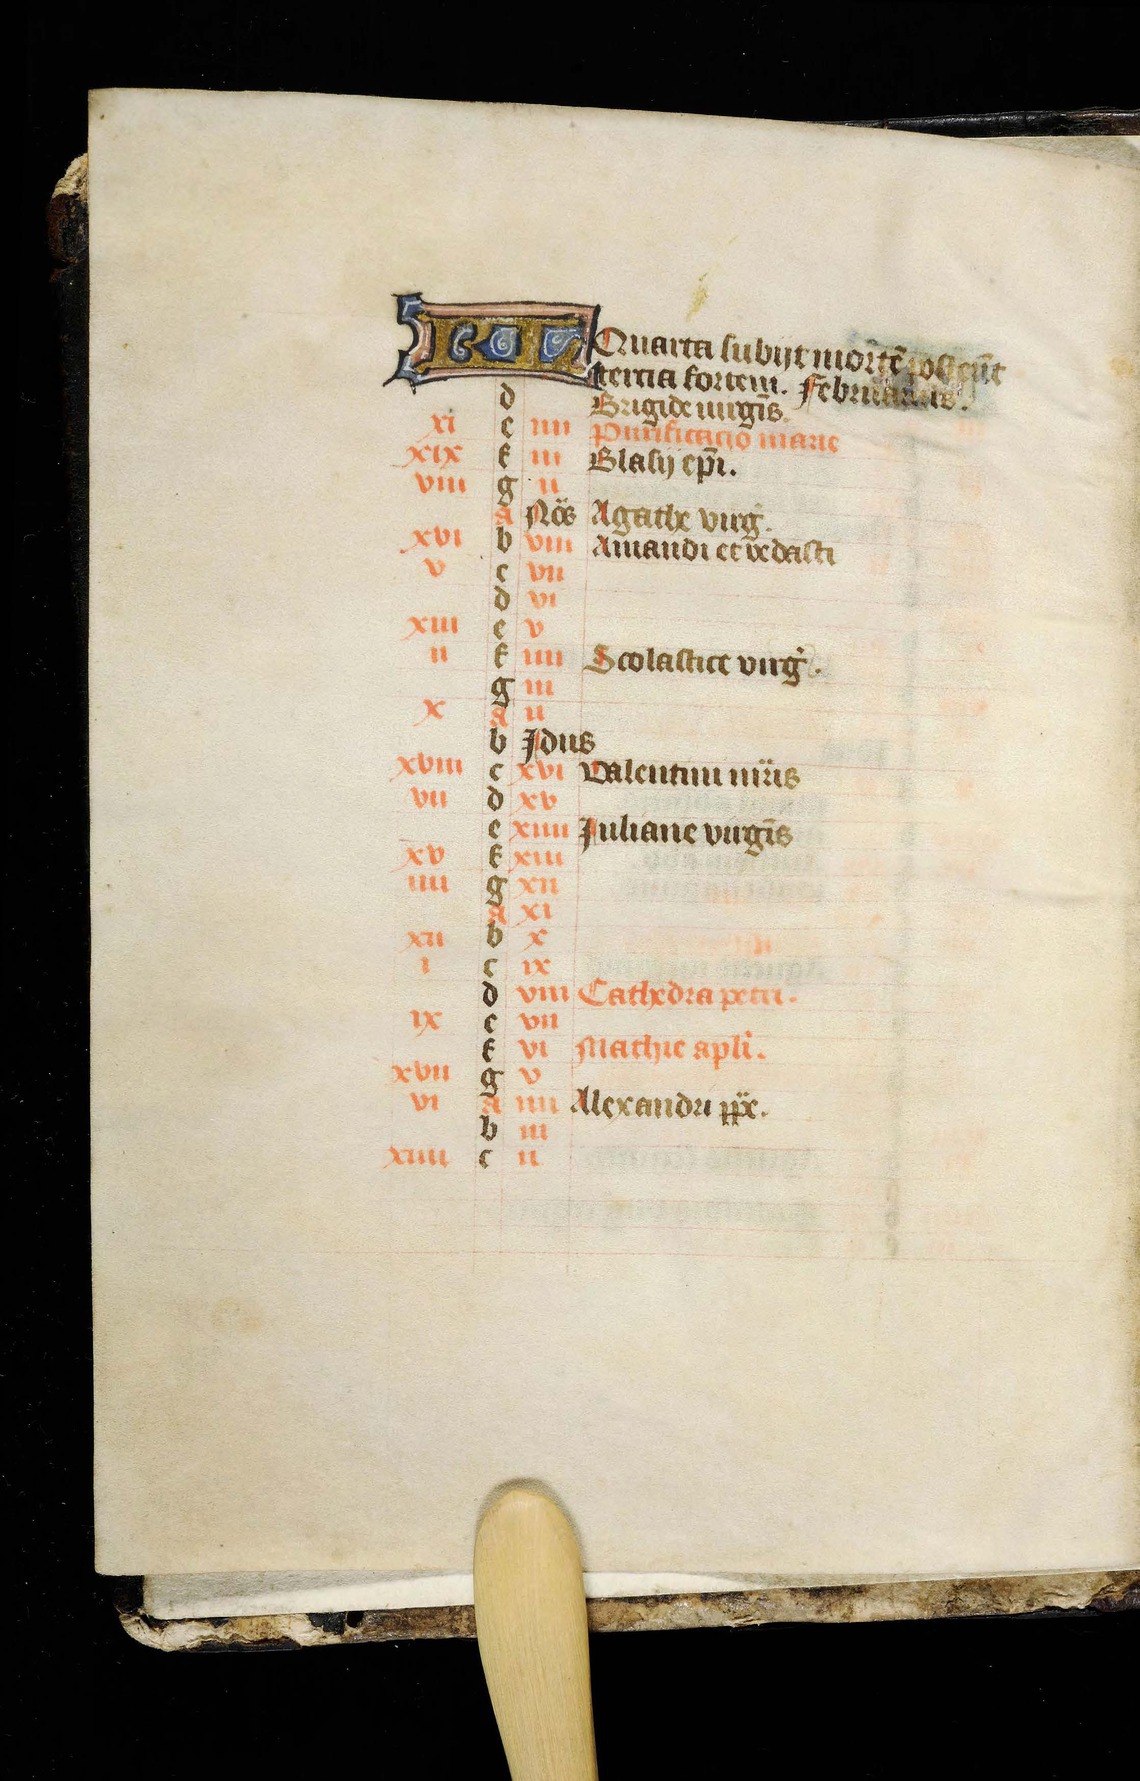 KL Quarta subijt mortē prost̄nit
tercia fortem. Februarius.
d Brigide uirgīs.
xi e iiii Purificatio marie
xix f iii Blasij ep̄i.
viii g ii
a Nōs Agathe virḡ.
xvi b viii Amandi et vedasti
v c vii
d vi
xiii e v
ii f iiii Scolastice virḡ.
g iii
x a ii
b Jdus
xviii c xvi Valentini mr̄is
vii d xv
e xiiii Juliane virgīs
xv f xiii
iiii g xii
a xi
xii b x
i c ix
d viii Cathedra petri.
ix e vii
f vi Mathie apl̄i.
xvii g v
vi a iiii Alexandri pp̄e.
b iii
xiiii c ii